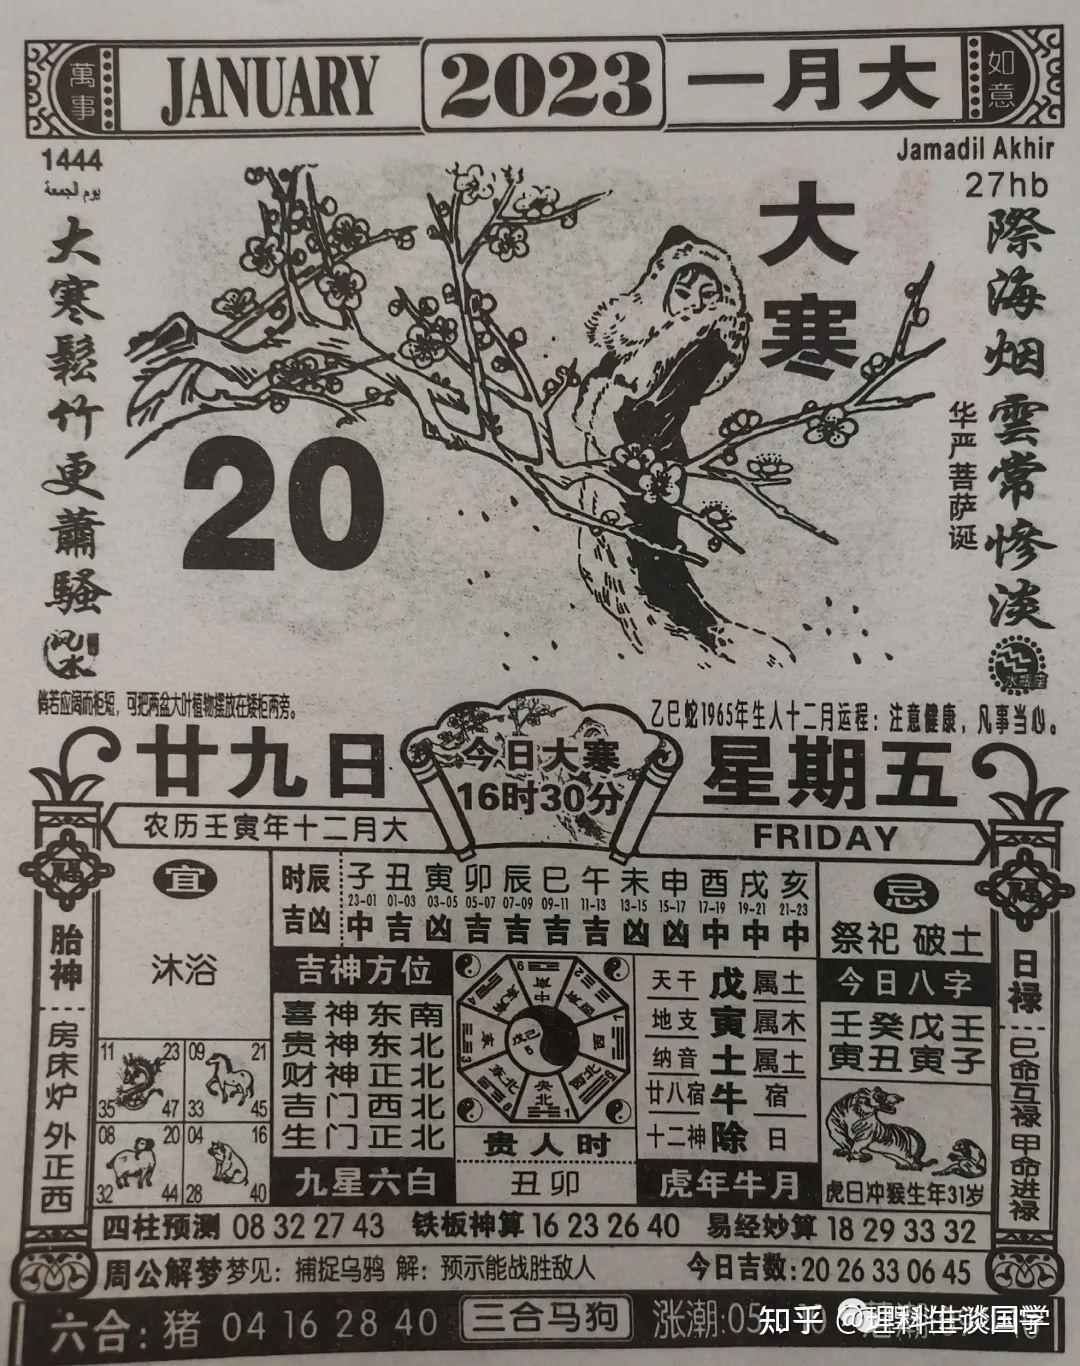 萬事
JANUARY
2023
一月大
如意
1444
Jamadil Akhir
27hb
大寒
大寒鬆竹更蕭騷
際海烟雲常慘淡
华严菩萨诞
20
风水
水瓶座
倘若应阔而柜短，可把两盆大叶植物摆放在矮柜两旁。
乙巳蛇1965年生人十二月运程：注意健康，凡事当心。
廿九日
今日大寒
16时30分
星期五
农历壬寅年十二月大
FRIDAY
福
福
宜
沐浴
时辰 子 丑 寅 卯 辰 巳 午 未 申 酉 戌 亥
23-01 01-03 03-05 05-07 07-09 09-11 11-13 13-15 15-17 17-19 19-21 21-23
吉凶 中 吉 凶 吉 吉 吉 吉 凶 凶 中 中 中
忌
祭祀 破土
胎神
房床炉 外正西
日禄
巳命互禄甲命进禄
吉神方位
喜神东南
贵神东北
财神正北
吉门西北
生门正北
九星六白
贵人时
丑卯
天干 戊 属土
地支 寅 属木
纳音 土 属土
廿八宿 牛 宿
十二神 除 日
虎年牛月
今日八字
壬癸戊壬
寅丑寅子
虎日冲猴生年31岁
11 23 09 21
35 47 33 45
08 20 04 16
32 44 28 40
四柱预测 08 32 27 43 铁板神算 16 23 26 40 易经妙算 18 29 33 32
周公解梦 梦见：捕捉乌鸦 解：预示能战胜敌人 今日吉数:20 26 33 06 45
六合：猪 04 16 28 40 三合马狗 涨潮:05
知乎 @理科生谈国学